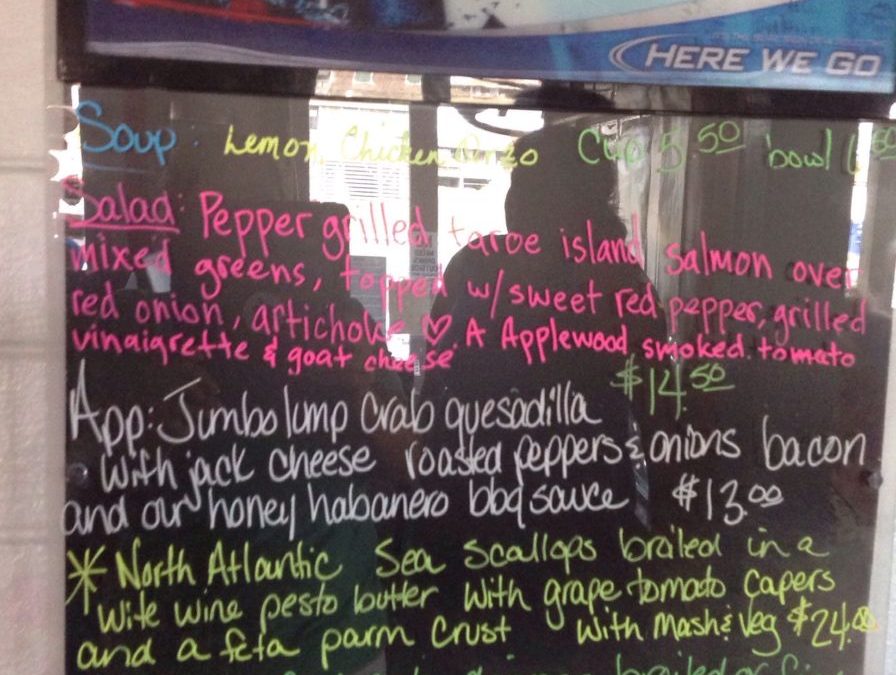 HERE WE GO
Soup. Lemon Chicken Orzo Cup 5.50 bowl
Salad: Pepper grilled taroe island salmon over
mixed greens, topped w/ sweet red pepper, grilled
red onion, artichoke ♡. A Applewood smoked tomato
vinaigrette & goat cheese
$14.50
App: Jumbo lump Crab quesadilla
with jack cheese roasted peppers & onions bacon
and our honey habanero bbq sauce $13.00
* North Atlantic Sea Scallops broiled in a
wite wine pesto butter with grape tomato capers
and a feta parm crust with Mash & Veg $24.00
broiled or